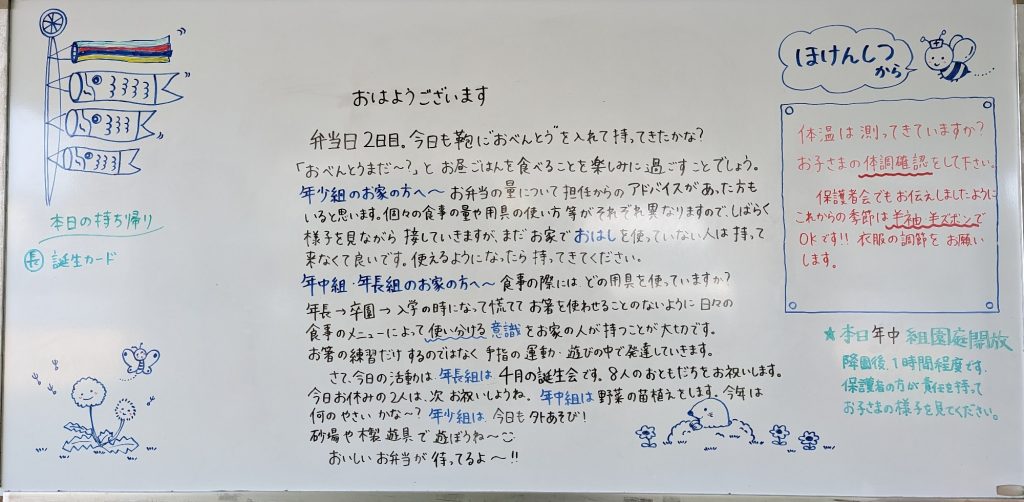 おはようございます
弁当日2日目。今日も鞄に"おべんとう"を入れて持ってきたかな?
「おべんとうまだ〜?」と お昼ごはんを食べることを楽しみに過ごすことでしょう。
年少組のお家の方へ〜 お弁当の量について担任からのアドバイスがあった方も
いると思います。個々の食事の量や用具の使い方等がそれぞれ異なりますので、しばらく
様子を見ながら 接していきますが、まだお家で おはしを使っていない人は持って
来なくて良いです。使えるようになったら 持ってきてください。
年中組・年長組のお家の方へ〜 食事の際には どの用具を使っていますか?
年長→卒園→入学の時になって慌てて お箸を使わせることのないように 日々の
食事のメニューによって 使い分ける意識をお家の人が持つことが大切です。
お箸の練習だけ するのではなく 手指の運動・遊びの中で発達していきます。
さて、今日の活動は、年長組は 4月の誕生会です。8人のおともだちをお祝いします。
今日お休みの2人は、次 お祝いしようね。年中組は野菜の苗植えをします。今年は
何の やさい かな〜? 年少組は、今日も 外あそび!
砂場や 木製 遊具 で 遊ぼうね〜
おいしい お弁当が 待ってるよ〜!!
本日の持ち帰り
長 誕生カード
ほけんしつ
から
体温は 測ってきていますか?
お子さまの 体調確認をして下さい。
保護者会でもお伝えしましたように
これからの季節は 半袖・半ズボンで
OKです!! 衣服の調節を お願い
します。
★本日 年中 組園庭開放
降園後、1時間程度です。
保護者の方が 責任を持って
お子さまの様子を見てください。